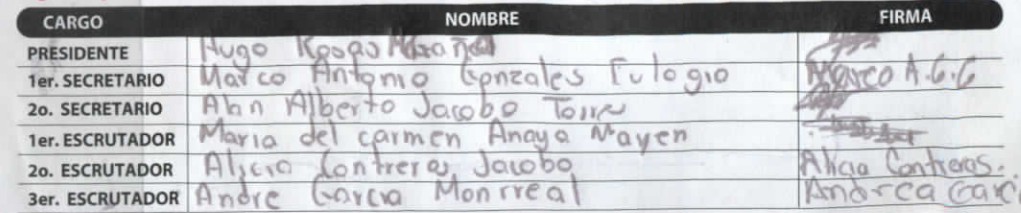 CARGO NOMBRE FIRMA
PRESIDENTE Hugo Rosas
1er. SECRETARIO Marco Antonio Gonzales Eulogio Marco A.G.E
2o. SECRETARIO Alan Alberto Jacobo Torre
1er. ESCRUTADOR Maria del carmen Anaya Mayen
2o. ESCRUTADOR Alicia Contreras Jacobo Alicia Contreras.
3er. ESCRUTADOR Andre Garcia Monrreal Andrea Garci